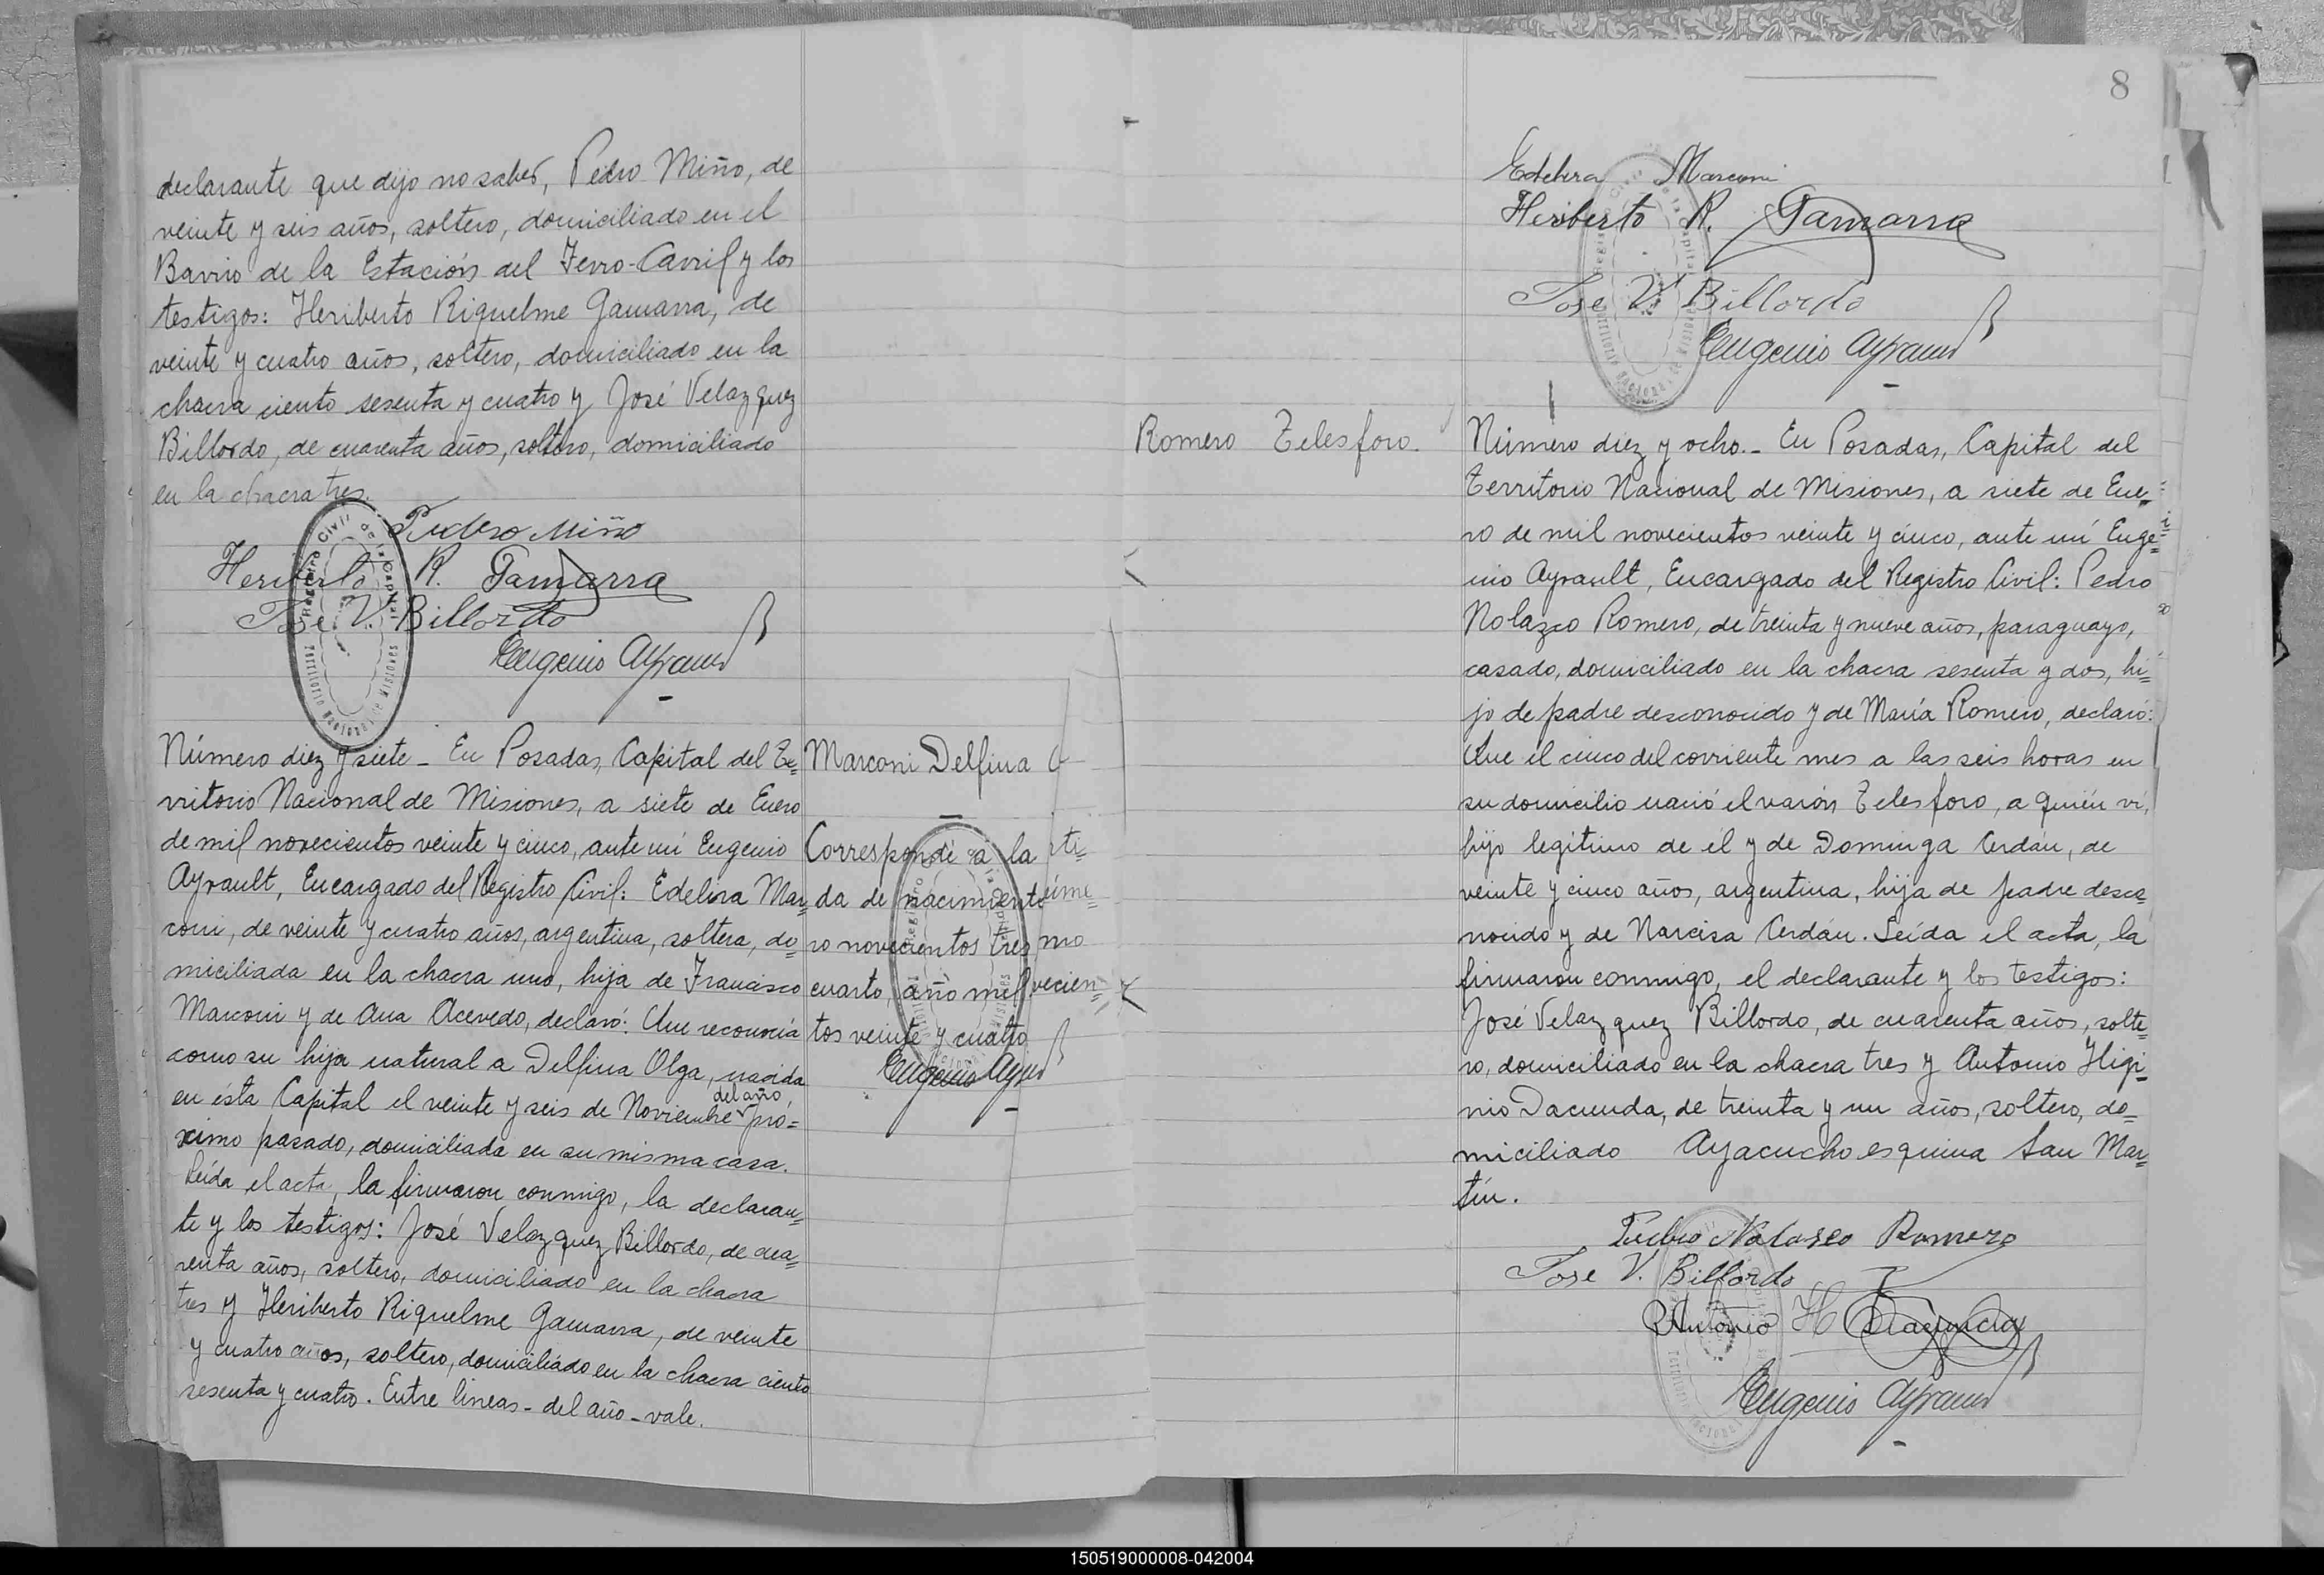 declarante que dijo no saber, Pedro Miño, de
veinte y seis años, soltero, domiciliado en el
Barrio de la Estación del Ferro-Carril y los
testigos: Heriberto Riquelme Gamarra, de
veinte y cuatro años, soltero, domiciliado en la
chacra ciento sesenta y cuatro y José Velazquez
Billordo, de cuarenta años, soltero, domiciliado
en la chacra tres.
Pedro Miño
Heriberto R. Gamarra
Jose V. Billordo
Eugenio Ayrault
Registro Civil de la Capital
Territorio Nacional de Misiones
Número diez y siete _ En Posadas, Capital del Te=
rritorio Nacional de Misiones, a siete de Enero
de mil novecientos veinte y cinco, ante mí Eugenio
Ayrault, Encargado del Registro Civil: Edelira Mar=
coni, de veinte y cuatro años, argentina, soltera, do=
miciliada en la chacra uno, hija de Francisco
Marconi y de Ana Acevedo, declaró: Que reconocía
como su hija natural a Delfina Olga, nacida
del año,
en ésta Capital el veinte y seis de Noviembre pró=
ximo pasado, domiciliada en su misma casa.
Leída el acta, la firmaron conmigo, la declaran=
te y los testigos: José Velazquez Billordo, de cua=
renta años, soltero, domiciliado en la chacra
tres y Heriberto Riquelme Gamarra, de veinte
y cuatro años, soltero, domiciliado en la chacra ciento
sesenta y cuatro. Entre lineas - del año - vale.
Marconi Delfina
Corresponde a la
da de nacimiento
ro novecientos tres
cuarto, año mil vecien=
tos veinte y cuatro
Eugenio Ayrault
8
Edelira Marconi
Heriberto R. Gamarra
Jose V. Billordo
Eugenio Ayrault
Romero Telesforo.
Número diez y ocho._ En Posadas, Capital del
Territorio Nacional de Misiones, a siete de Ene=
ro de mil novecientos veinte y cinco, ante mí Euge=
nio Ayrault, Encargado del Registro Civil: Pedro
Nolazco Romero, de treinta y nueve años, paraguayo,
casado, domiciliado en la chacra sesenta y dos, hi=
jo de padre desconocido y de María Romero, declaró:
Que el cinco del corriente mes a las seis horas en
su domicilio nació el varón Telesforo, a quién ví,
hijo legítimo de él y de Dominga Cerdán, de
veinte y cinco años, argentina, hija de padre desco=
nocido y de Narcisa Cerdán. Leída el acta, la
firmaron conmigo, el declarante y los testigos:
José Velazquez Billordo, de cuarenta años, solte=
ro, domiciliado en la chacra tres y Antonio Higi=
nio Dacunda, de treinta y un años, soltero, do=
miciliado Ayacucho esquina San Mar=
tín.
Pedro Nolasco Romero
Jose V. Billordo
Antonio H Dacunda
Eugenio Ayrault
150519000008-042004